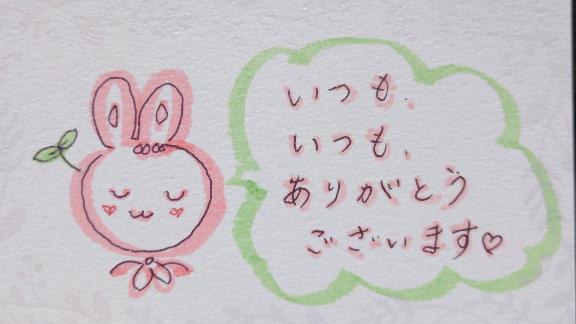 いつも、
いつも、
ありがとう
ございます♡